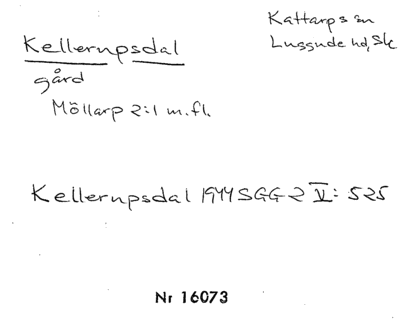 Kellerupsdal
Kattarps sn
Luggude hd, Sk
gård
Möllarp 2:1 m.fl.
Kellerupsdal 1944 SGG 2 V: 525
Nr 16073